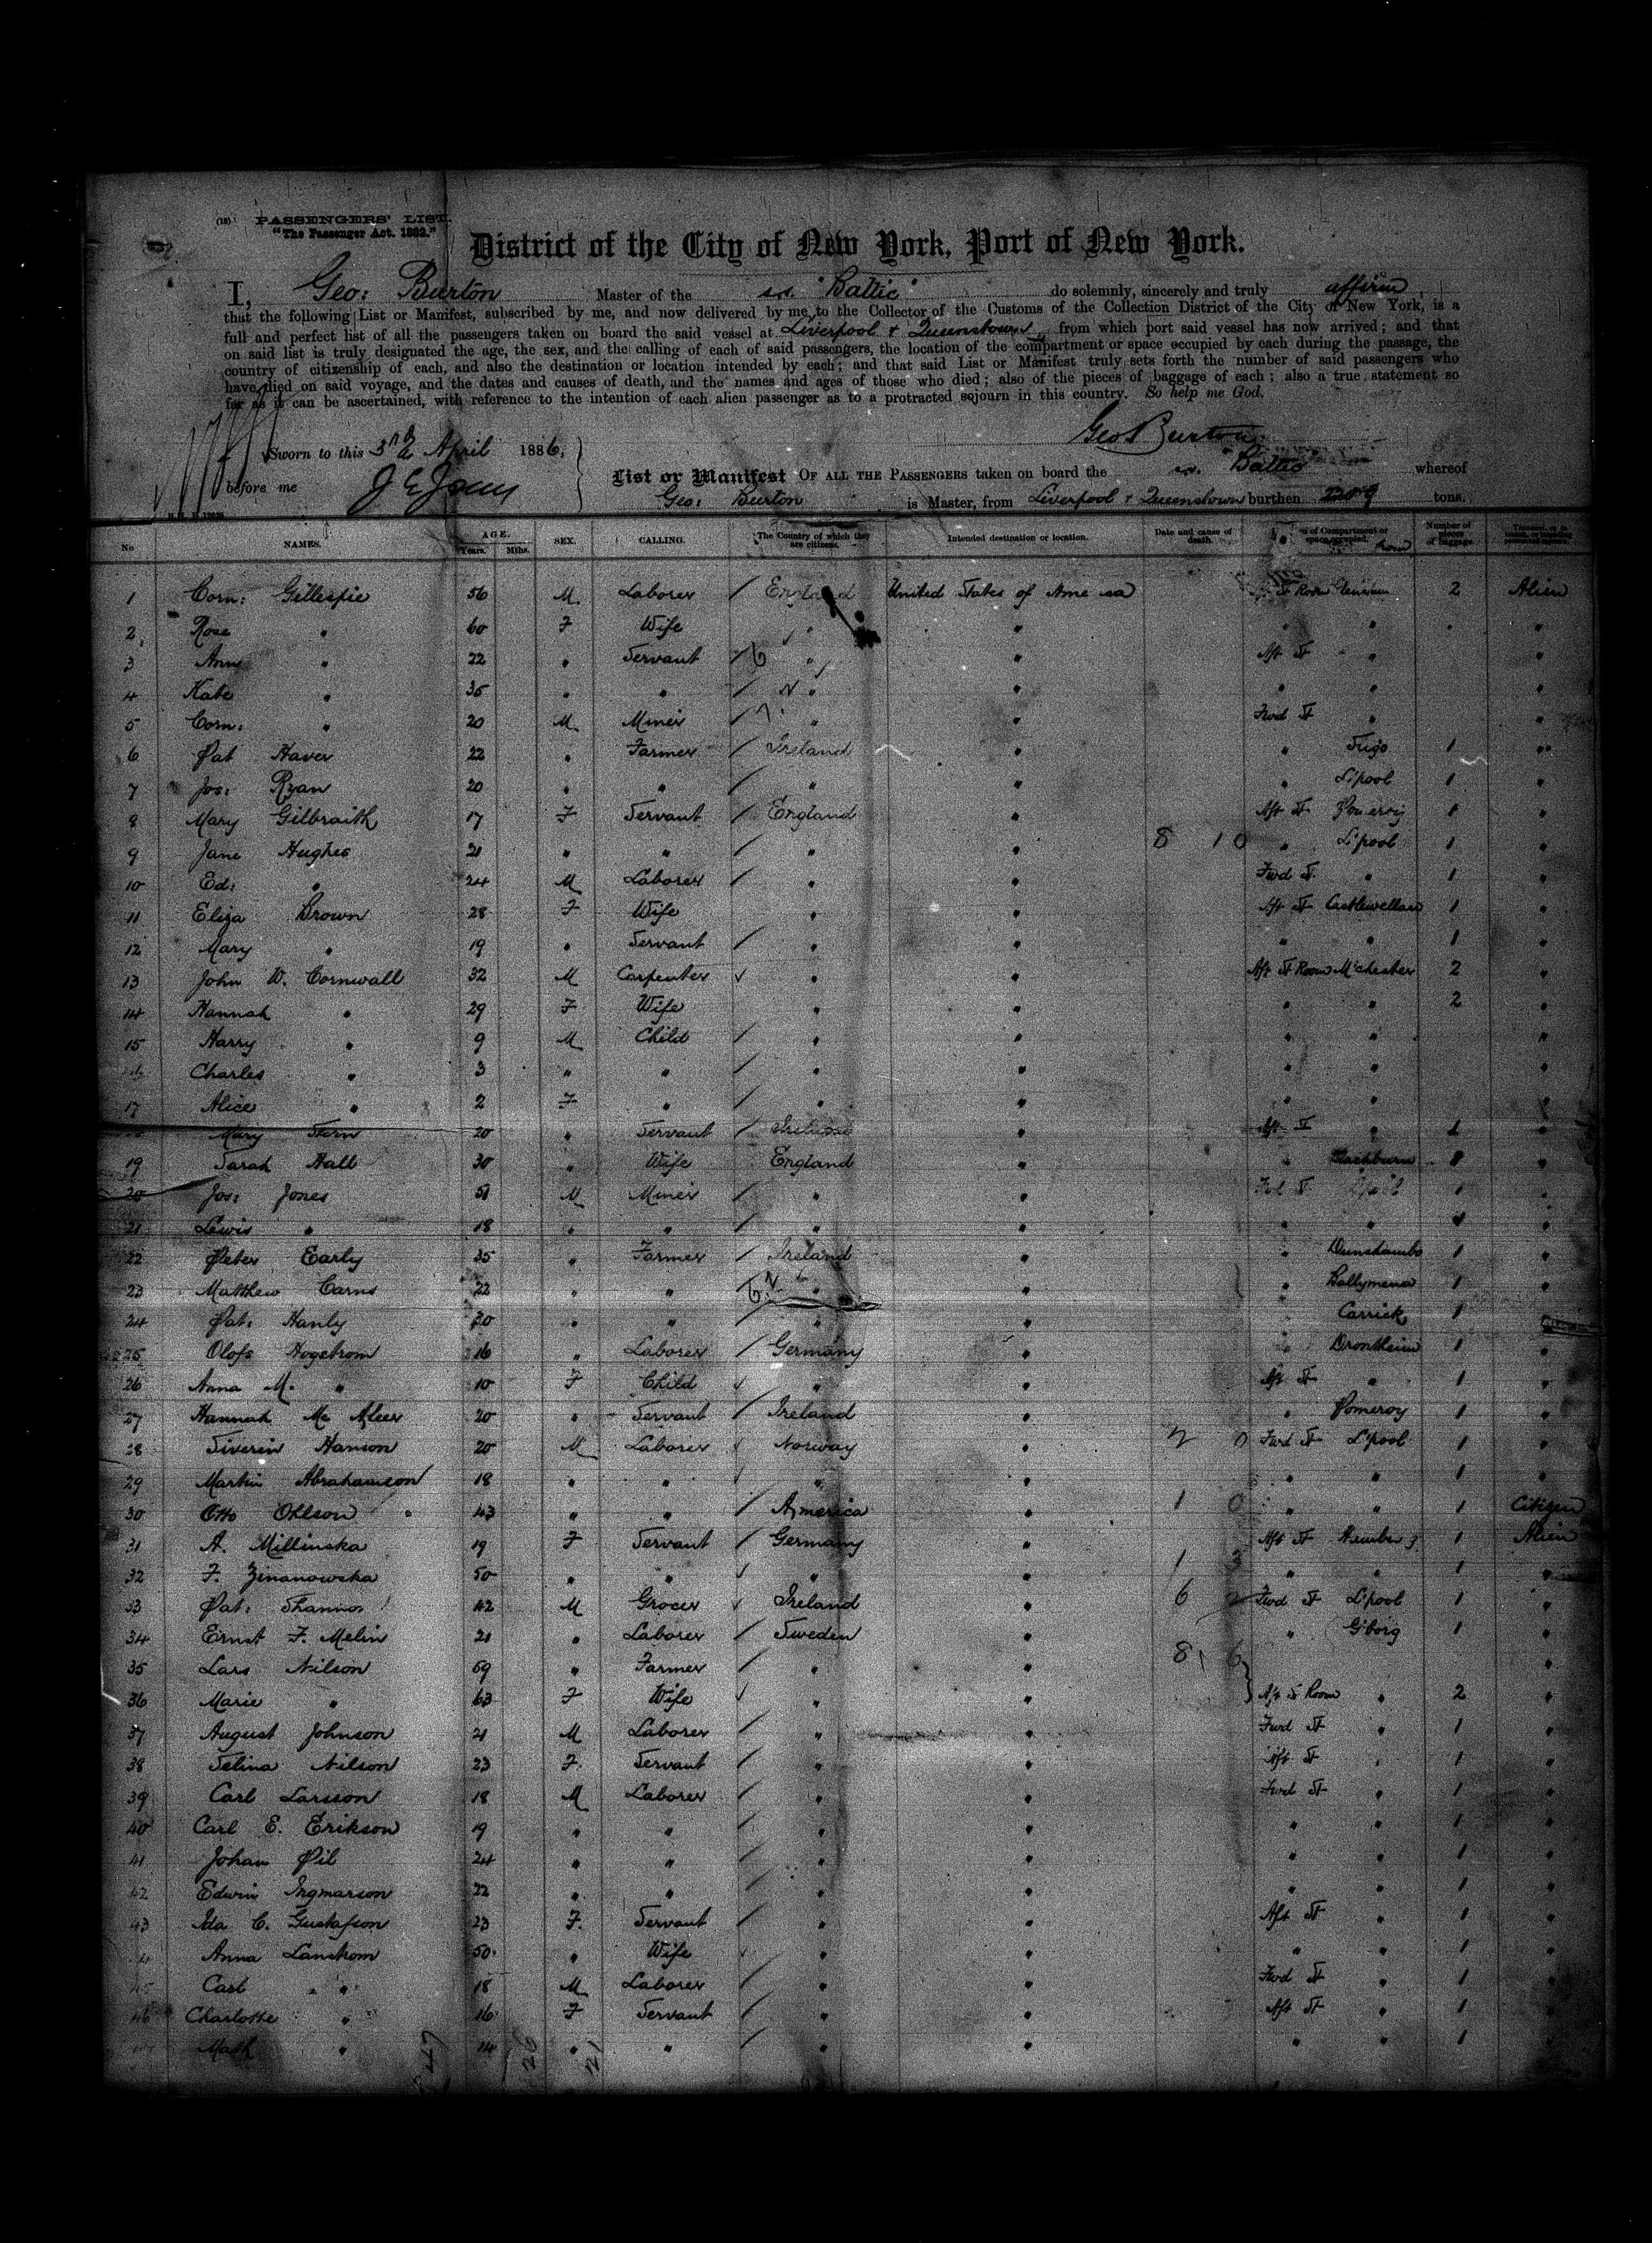 (18) PASSENGERS' LIST.
"The Passenger Act. 1882."
District of the City of New York, Port of New York.
I, Geo: Burton Master of the s.s. "Baltic" do solemnly, sincerely and truly affirm,
that the following List or Manifest, subscribed by me, and now delivered by me to the Collector of the Customs of the Collection District of the City of New York, is a
full and perfect list of all the passengers taken on board the said vessel at Liverpool & Queenstown, from which port said vessel has now arrived; and that
on said list is truly designated the age, the sex, and the calling of each of said passengers, the location of the compartment or space occupied by each during the passage, the
country of citizenship of each, and also the destination or location intended by each; and that said List or Manifest truly sets forth the number of said passengers who
have died on said voyage, and the dates and causes of death, and the names and ages of those who died; also of the pieces of baggage of each; also a true statement so
far as it can be ascertained, with reference to the intention of each alien passenger as to a protracted sojourn in this country. So help me God.
Geo Burton
Sworn to this 3rd April 1886,
before me
List or Manifest OF ALL THE PASSENGERS taken on board the s.s. "Baltic" whereof
Geo: Burton is Master, from Liverpool & Queenstown burthen 2209 tons.
No NAMES. AGE. Years. Mths. SEX. CALLING. The Country of which they are citizens. Intended destination or location. Date and cause of death. of Compartment or space occupied. from Number of pieces of baggage.
1 Corn: Gillespie 56 M Laborer / England United States of America St Room 2 Alien
2 Rose " 60 F Wife " " " " "
3 Ann " 22 " Servant / " " Aft St " "
4 Kate " 35 " " / " " " " "
5 Corn: " 20 M Miner / " " Fwd St " "
6 Pat Haver 22 " Farmer / Ireland " " Sligo 1 "
7 Jos: Ryan 20 " " / " " " L'pool 1 "
8 Mary Gilbraith 17 F Servant / England " Aft St Pomeroy 1 "
9 Jane Hughes 21 " " / " " 8 10 " L'pool 1 "
10 Ed: " 24 M Laborer / " " Fwd St " 1 "
11 Eliza Brown 28 F Wife " " Aft St Castlewellan 1 "
12 Mary " 19 " Servant / " " " " 1 "
13 John W. Cornwall 32 M Carpenter ✓ " " Aft St Room M'chester 2 "
14 Hannah " 29 F Wife " " " " 2 "
15 Harry " 9 M Child / " " " " "
Charles " 3 " " / " " " " "
17 Alice " 2 F " / " " " " "
Mary Stern 20 " Servant / Ireland " Aft St " 1 "
19 Sarah Hall 30 " Wife England " " Blackburn "
20 Jos: Jones 51 M Miner / " " Fwd St L'pool 1 "
21 Lewis " 18 " " / " " " " "
22 Peter Early 35 " Farmer / Ireland " " 1 "
23 Matthew Carns 22 " " / " " " Ballymena 1 "
24 Pat: Hanly 20 " " / " " " Carrick 1 "
25 Olofs Hogstrom 16 " Laborer / Germany " " Drontheim 1 "
26 Anna M. " 10 F Child ✓ " " Aft St " 1 "
27 Hannah Mc Aleer 20 " Servant / Ireland " " Pomeroy 1 "
28 Siverin Hanson 20 M Laborer ✓ Norway " Fwd St L'pool 1 "
29 Martin Abrahamson 18 " " ✓ " " " " 1 "
30 Otto Ohlson 43 " " / America " 1 0 " " 1 Citizen
31 A. Millinska 19 F Servant / Germany " Aft St 1 Alien
32 F. Zinanowska 50 " " ✓ " " 1 3 " " 1 "
33 Pat: Shannon 42 M Grocer ✓ Ireland " 6 2 Fwd St L'pool 1 "
34 Ernst F. Melin 21 " Laborer / Sweden " " G'borg 1 "
35 Lars Nilson 69 " Farmer / " " 8 6 "
36 Marie " 63 F Wife ✓ " " Aft St Room " 2 "
37 August Johnson 21 M Laborer / " " Fwd St " 1 "
38 Selina Nilson 23 F. Servant / " " Aft St " 1 "
39 Carl Larsson 18 M Laborer / " " Fwd St " 1 "
40 Carl E. Erikson 19 " " / " " " " 1 "
41 Johan Pil 24 " " / " " " " 1 "
42 Edwin Ingmarson 22 " " / " " " " 1 "
43 Ida C. Gustafson 23 F. Servant / " " Aft St " 1 "
Anna Lanstrom 50 " Wife ✓ " " " " 1 "
45 Carl " 18 M Laborer / " " Fwd St " 1 "
46 Charlotte " 16 F Servant / " " Aft St " 1 "
Math " 14 " " / " " " " 1 "
47 26 21